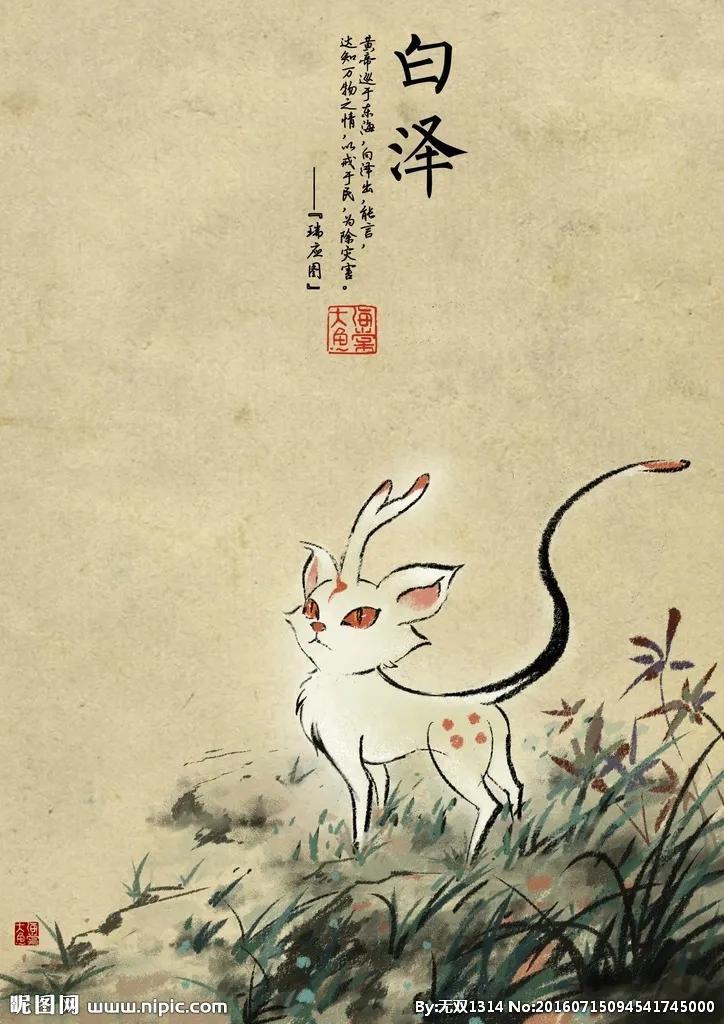 白泽
黄帝巡于东海，白泽出，能言，
达知万物之情，以戒于民，为除灾害。
——『瑞应图』
大鱼
昵图网 www.nipic.com
By:无双1314 No:20160715094541745000